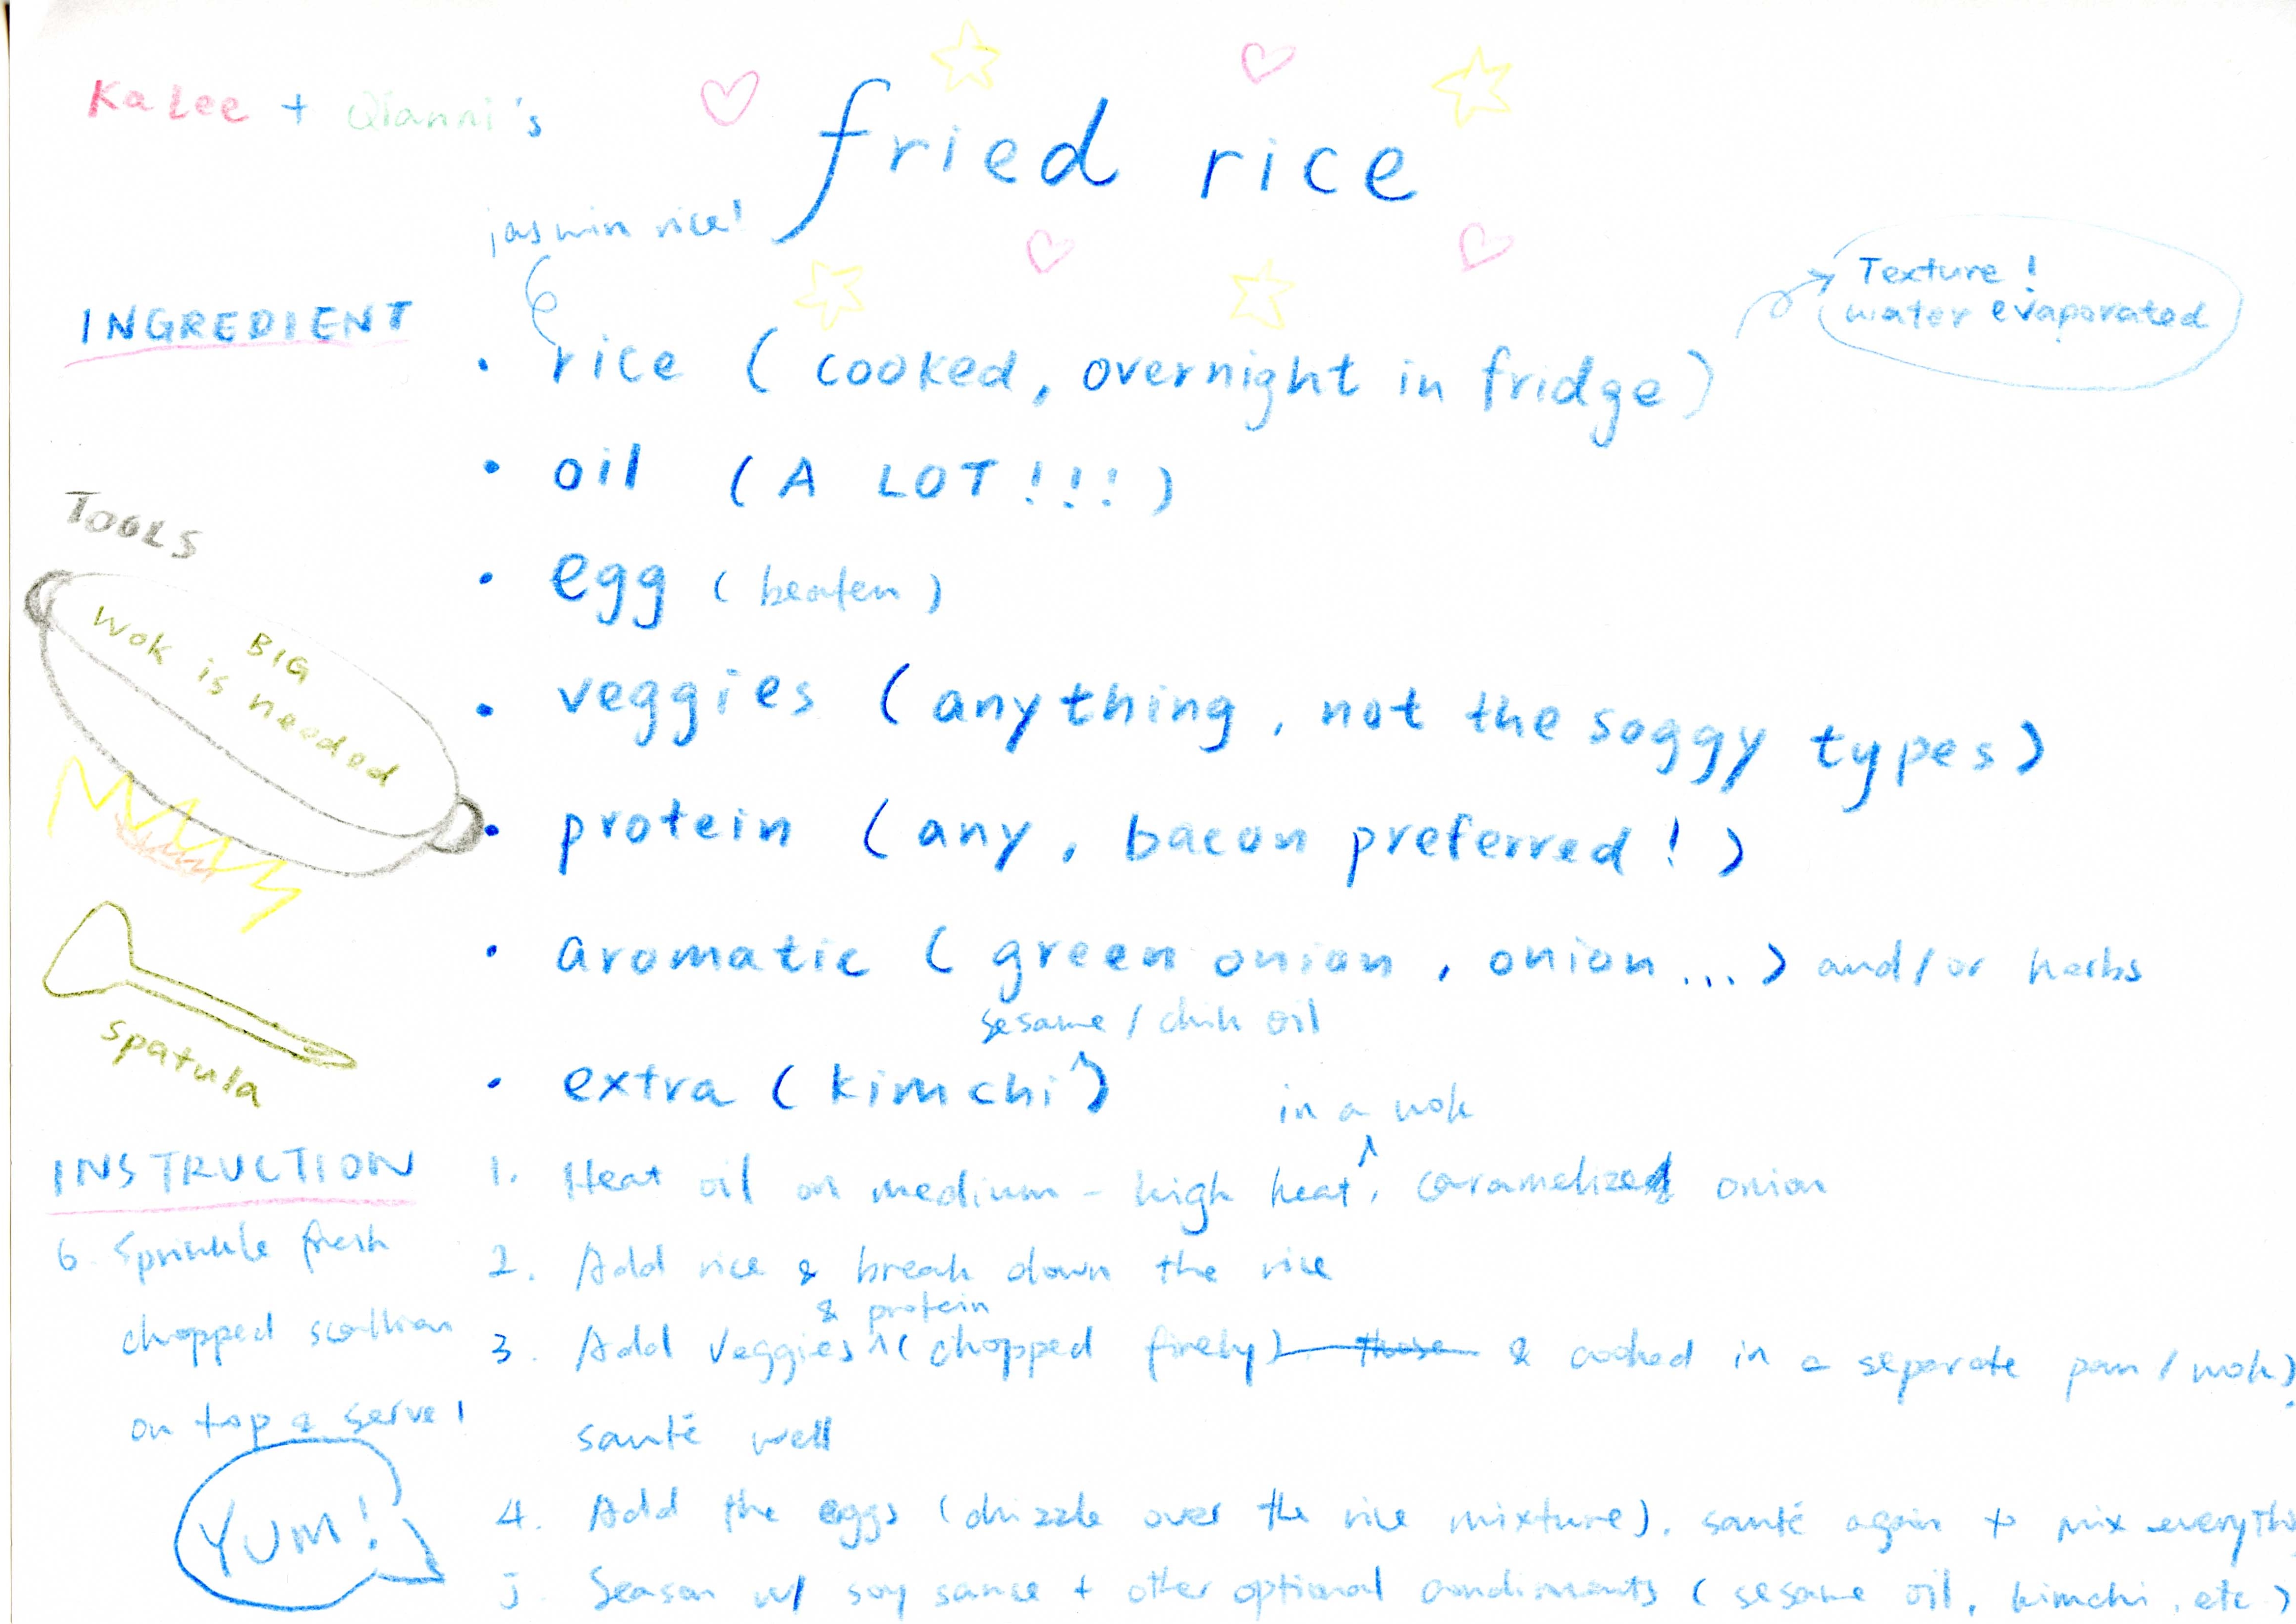 Ka Lee + Qianni's
fried rice
jasmin rice!
Texture !
water evaporated
INGREDIENT
• rice ( cooked, overnight in fridge)
• oil (A LOT!!!)
• egg (beaten)
• veggies (anything, not the soggy types)
• protein (any, bacon preferred!)
• aromatic ( green onion, onion...) and/or herbs
sesame / chili oil
• extra (kimchi^)
TOOLS
BIG
Wok is needed
spatula
INSTRUCTION
in a wok
1. Heat oil on medium - high heat^, caramelized onion
2. Add rice & break down the rice
& protein
3. Add veggies ^(chopped finely) those & cooked in a separate pan / wok).
sauté well
4. Add the eggs (drizzle over the rice mixture). sauté again to mix everythi
5 Season w/ soy sauce + other optional condiments (sesame oil, kimchi, etc)
6. Sprinkle fresh
chopped scallion
on top & serve!
YUM!